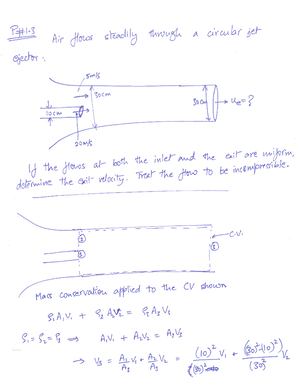 P#1-3 Air flows steadily through a circular jet
ejector:
5m/s
30cm
10cm
20m/s
30cm
Ue=?
If the flows at both the inlet and the exit are uniform,
determine the exit velocity. Treat the flow to be incompressible.
C.V.
Mass conservation applied to the CV shown
ρ₁A₁V₁ + ρ₂A₂V₂ = ρ₃A₃V₃
ρ₁=ρ₂=ρ₃ ⇒ A₁V₁ + A₂V₂ = A₃V₃
→ V₃ = A₁/A₃ V₁ + A₂/A₃ V₂ = (10)²/(30)² V₁ + ((30)²-(10)²)/(30)² V₂